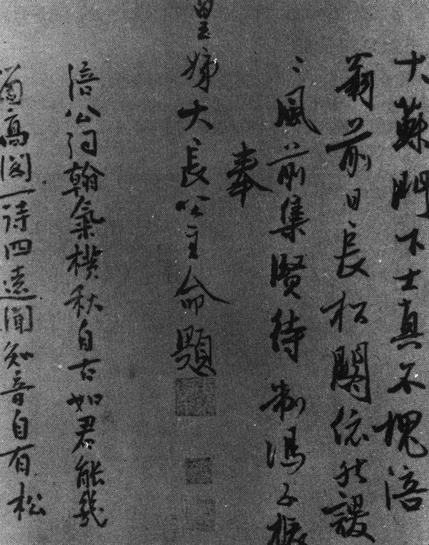 大蘇門下士真不愧涪
翁前日長松閣依然謖
〻風前集賢待制馮子振
奉
皇姊大長公主命題
涪公詞翰氣橫秋自古如君能幾
箇高閣一詩四遠聞知音自有松